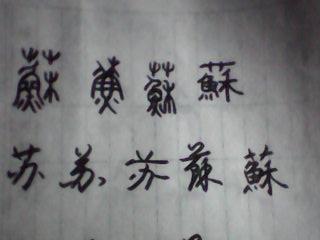 蘇 蘇 蘇 蘇
苏 苏 苏 蘇 蘇